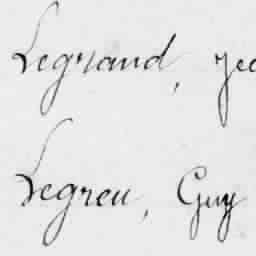 Legrand, Jea
Legreu, Guy